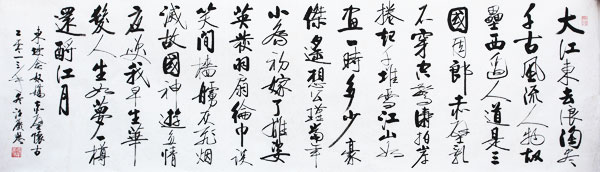 大江東去浪淘盡
千古風流人物故
壘西邊人道是三
國周郎赤壁亂
石穿空驚濤拍岸
捲起千堆雪江山如
畫一時多少豪
傑遙想公瑾當年
小喬初嫁了雄姿
英發羽扇綸巾談
笑間檣艣灰飛煙
滅故國神遊多情
應笑我早生華
髮人生如夢一樽
還酹江月
東坡念奴嬌赤壁懷古
二零一三年